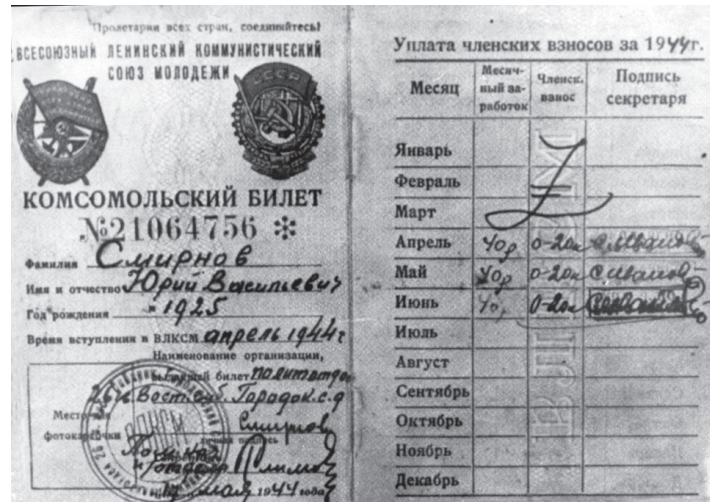 Пролетарии всех стран, соединяйтесь!
ВСЕСОЮЗНЫЙ ЛЕНИНСКИЙ КОММУНИСТИЧЕСКИЙ
СОЮЗ МОЛОДЕЖИ
СССР
КОМСОМОЛЬСКИЙ БИЛЕТ
№21064756 *
Фамилия Смирнов
Имя и отчество Юрий Васильевич
Год рождения 1925
Время вступления в ВЛКСМ апрель 1944 г
Наименование организации,
билет политотдел
Городок. с.д
Место для Смирнов
фотокарточки личная подпись
1944 года
Уплата членских взносов за 1944г.
Месяц Месяч- ный за- работок Членск. взнос Подпись секретаря
Январь
Февраль
Март
Апрель 40р 0-20к
Май 40р 0-20к
Июнь 0-20к
Июль
Август
Сентябрь
Октябрь
Ноябрь
Декабрь
ВЛКСМ